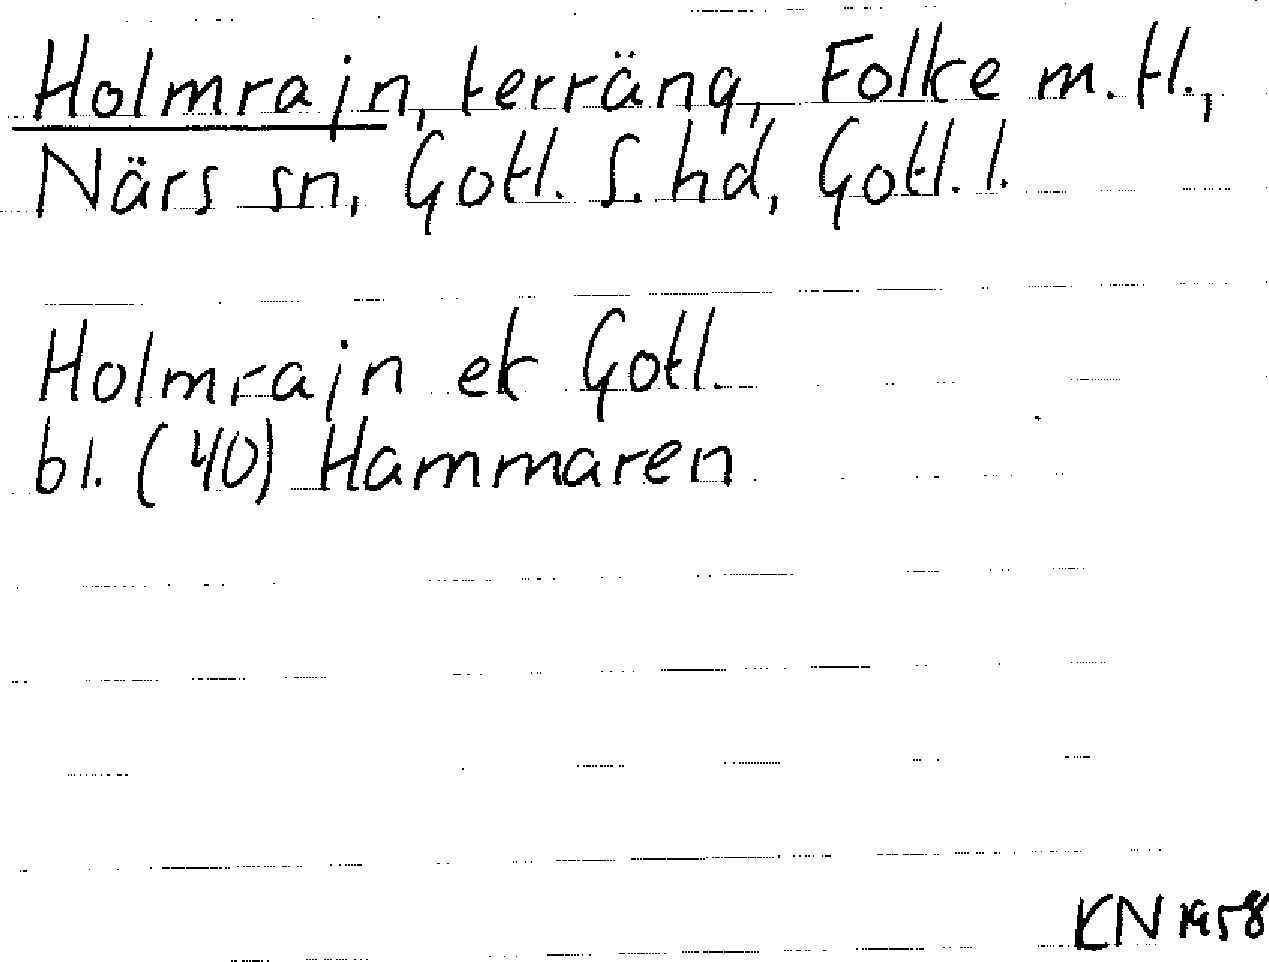 Holmrajn, terräng, Folke m. fl.,
Närs sn, Gotl. S. hd, Gotl. l.
Holmrajn ek Gotl.
bl. (40) Hammaren
KN 1958